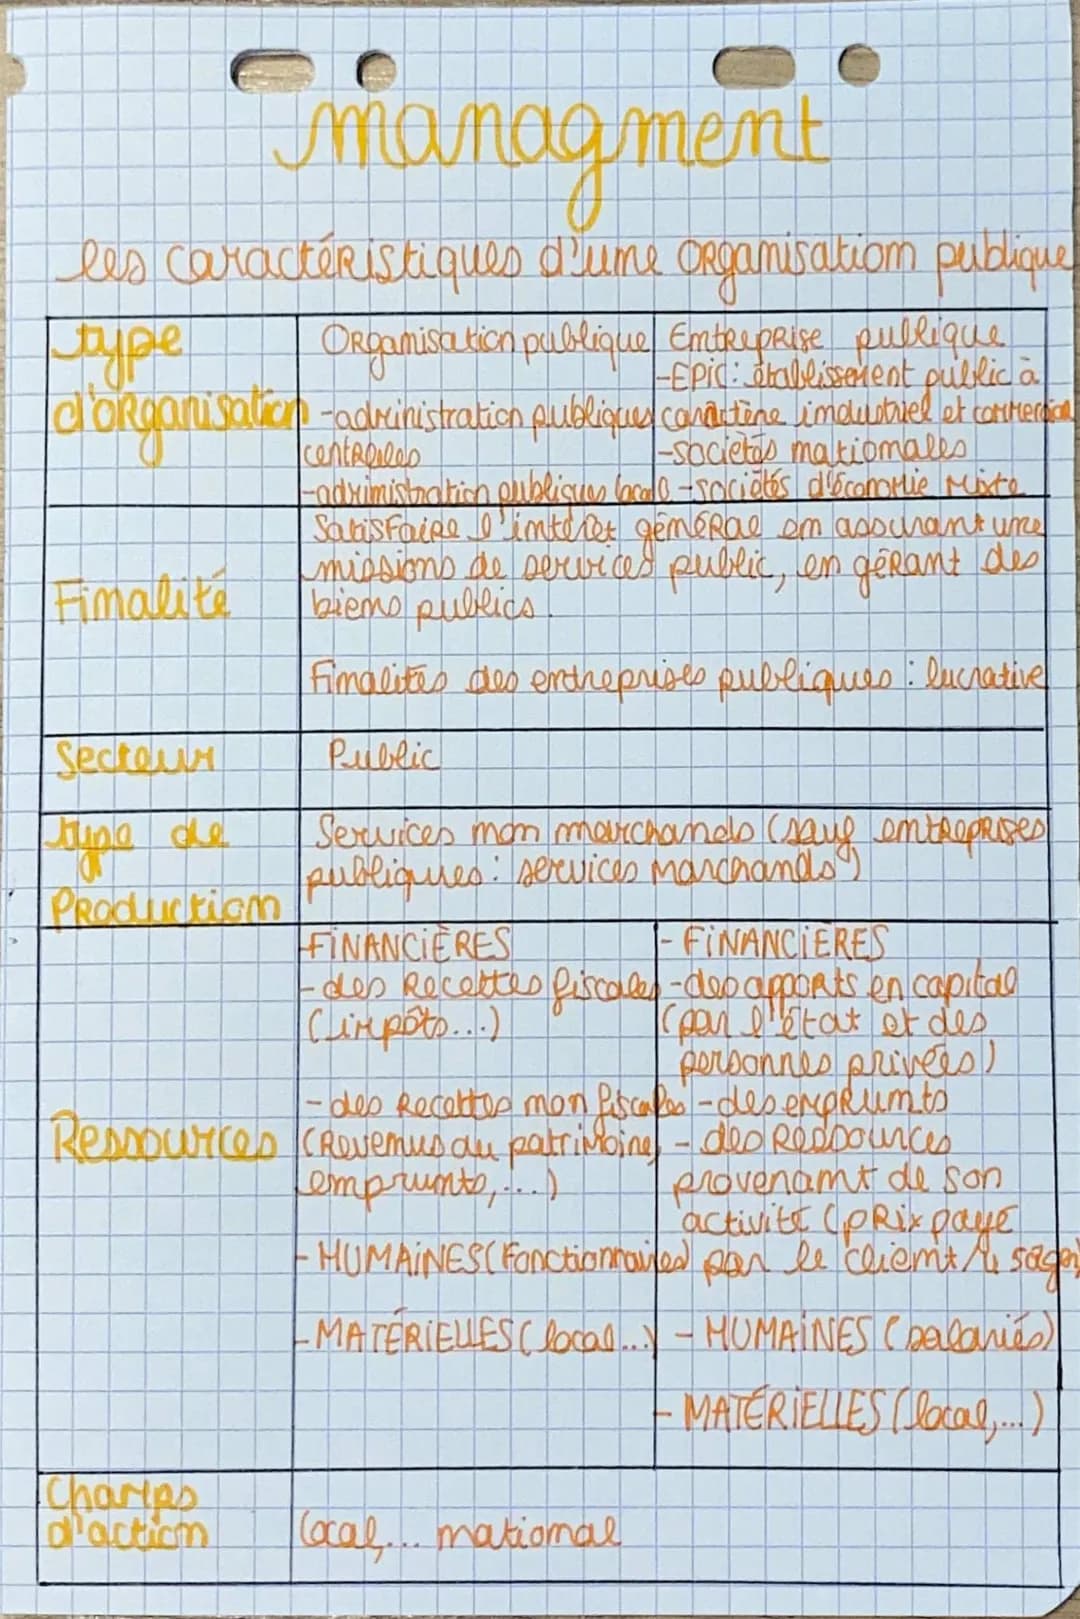 managment
les caractéristiques d'une organisation publique
type
d'organisation
Organisation publique
-administration publiques
centrales
-administration publiques local
Entreprise publique
-EPIC: établissement public à
caractère industriel et commercial
-sociétés nationales
-sociétés d'économie mixte
Finalité
Satisfaire l'intérêt général en assurant une
missions de services public, en gérant des
biens publics.
Finalités des entreprises publiques : lucrative
Secteur
Public
type de
Production
Services non marchands (sauf entreprises
publiques: services marchands)
Ressources
-FINANCIÈRES
-des Recettes fiscales
(impôts...)
-des Recettes non fiscales
(Revenus du patrimoine,
emprunts,...)
-HUMAINES (Fonctionnaires)
-MATÉRIELLES (local...)
- FINANCIÈRES
-des apports en capital
(par l'état et des
personnes privées)
-des emprunts
- des Ressources
provenant de son
activité (prix payé
par le client/l'usager)
- HUMAINES (salariés)
- MATÉRIELLES (local,...)
Champs
d'action
local,... national